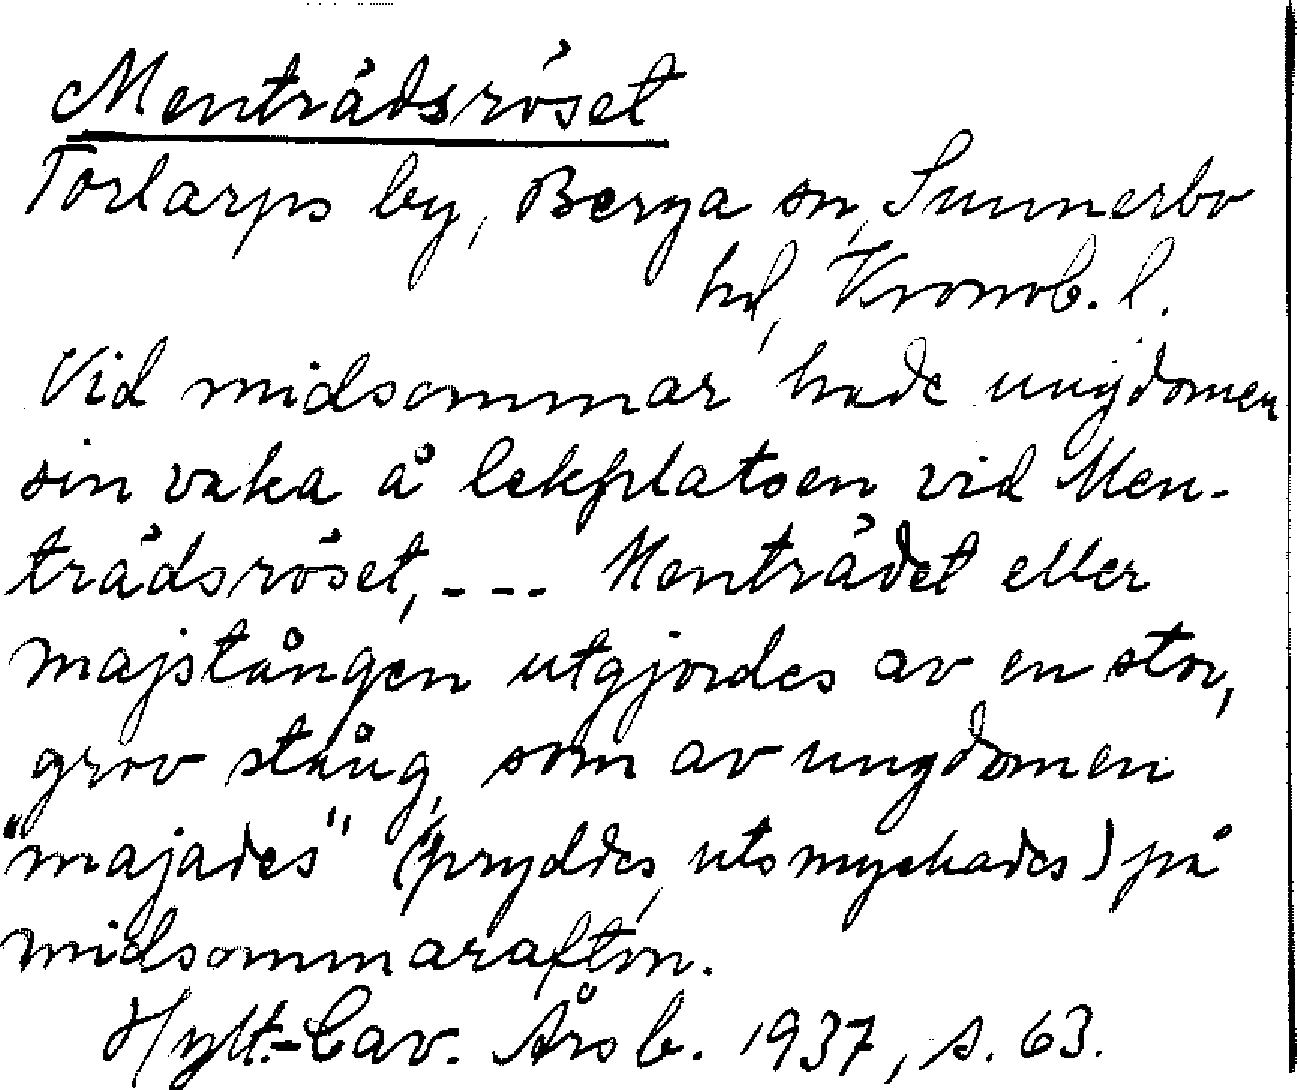 Menträdsröset
Torlarps by, Berga sn, Sunnerbo
hd, Kronob. l.
Vid midsommar hade ungdomen
sin vaka å lekplatsen vid Men-
trädsröset, - - - Menträdet eller
majstången utgjordes av en stor,
grov stång, som av ungdomen
"majades" (pryddes, utsmyckades) på
midsommarafton.
Hylt.-Cav. Årsb. 1937, s. 63.